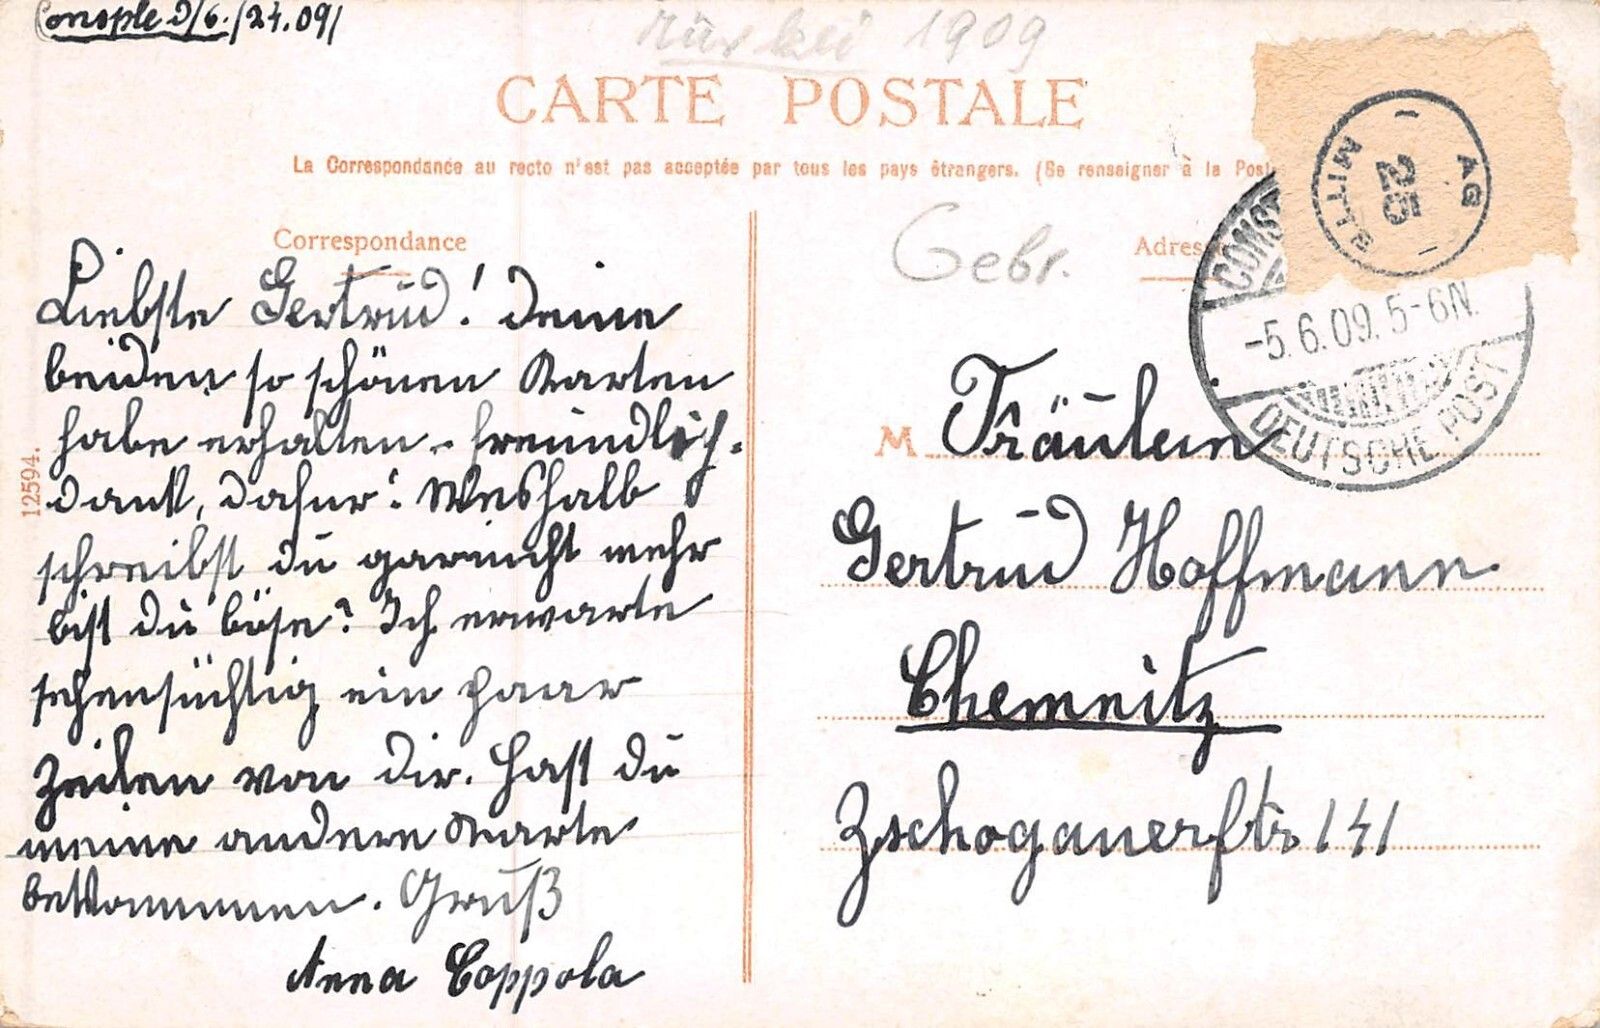 Consple 2/6./24.09/
Türkei 1909
CARTE POSTALE
La Correspondance au recto n'est pas acceptée par tous les pays étrangers. (Se renseigner à la Post
Correspondance
Liebste Gertrud! Deine
beiden so schönen Karten
habe erhalten – freundlich.
dank, dafür! Weshalb
schreibst du garnicht mehr
bist du böse? Ich erwarte
sehensüchtig ein paar
Zeilen von dir. Hast du
meine andere Karte
bekommen. Gruß
Anna Coppola
12594.
Gebr.
Adres
AG
25
MITTE
CONS
-5.6.09. 5-6N.
DEUTSCHE POST
M Fräulein
Gertrud Hoffmann
Chemnitz
Zschogauerstr 141